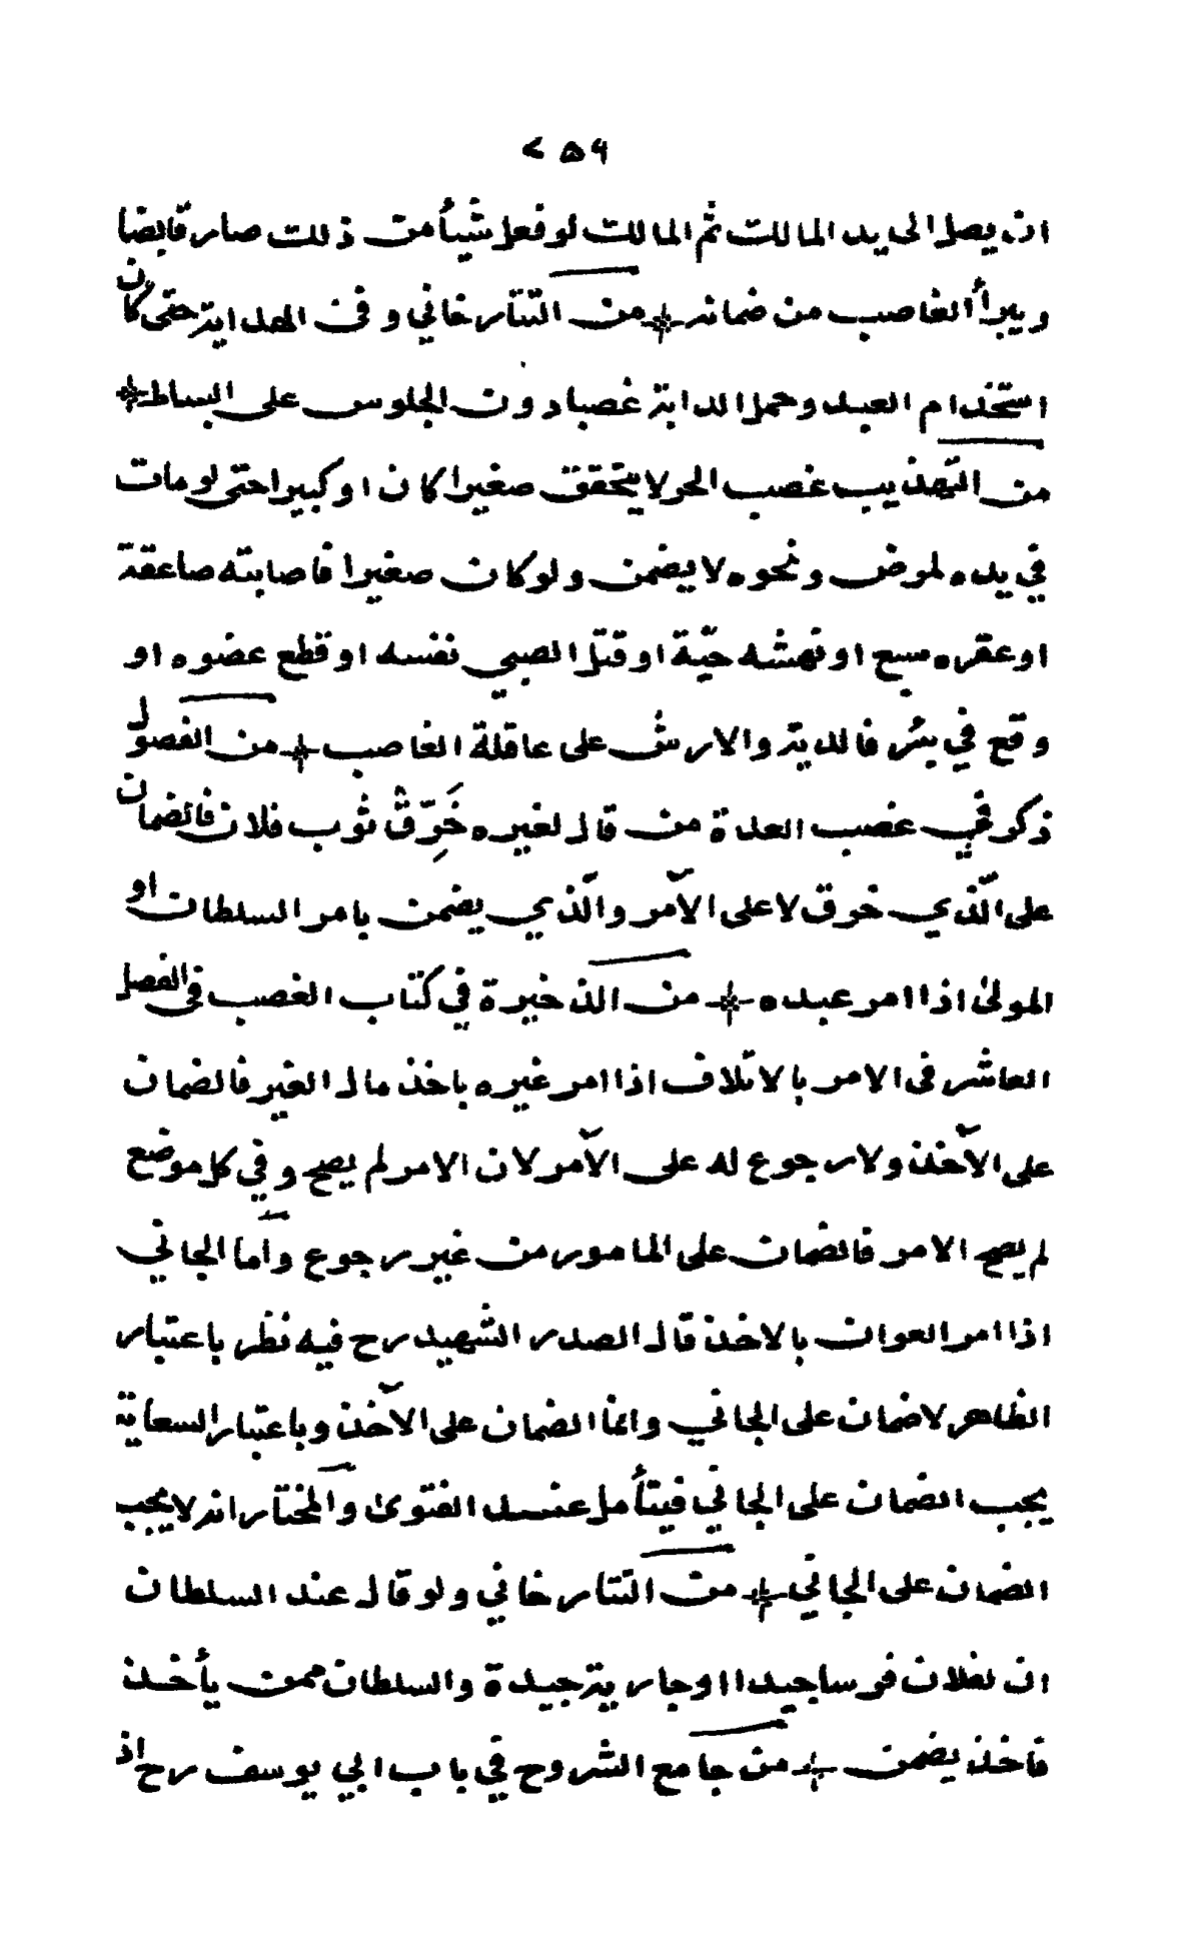 ٢٥٩
ان يصل الى يد المالك ثم المالك لو فعل شيأ من ذلك صار قابضا
ويبرأ الغاصب من ضمانه ⁜ من التتارخاني وفى الهداية حتى كان
استخدام العبد وحمل الدابة غصبا دون الجلوس على البساط ⁜
من التهذيب غصب الحر لا يتحقق صغيرا كان او كبيرا حتى لو مات
في يده لمرض ونحوه لا يضمن ولو كان صغيرا فاصابته صاعقة
او عقره سبع او نهشه حيّة او قتل الصبي نفسه او قطع عضوه او
وقع في بئر فالدية والارش على عاقلة الغاصب ⁜ من الفصول
ذكر في غصب العدة من قال لغيره خَرِّقْ ثوب فلان فالضمان
على الّذي خرق لا على الآمر والّذي يضمن بامر السلطان او
المولىٰ اذا امر عبده ⁜ من الذخيرة في كتاب الغصب فى الفصل
العاشر فى الامر بالاتلاف اذا امر غيره باخذ مال الغير فالضمان
على الآخذ ولا رجوع له على الآمر لان الامر لم يصح وفي كل موضع
لم يصح الامر فالضمان على المامور من غير رجوع واما الجاني
اذا امر العوان بالاخذ قال الصدر الشهيد رح فيه نظر باعتبار
الظاهر لا ضمان على الجاني وانما الضمان على الآخذ وباعتبار السعاية
يجب الضمان على الجاني فيتأمل عند الفتوىٰ والمختار انه لا يجب
الضمان على الجاني ⁜ من التتارخاني ولو قال عند السلطان
ان لفلان فرسا جيدا او جارية جيدة والسلطان ممن يأخذ
فاخذ يضمن ⁜ من جامع الشروح في باب ابي يوسف رح اذ